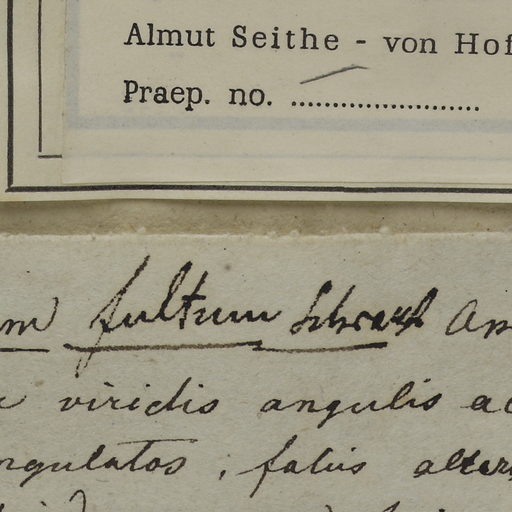 Almut Seithe - von Hof
Praep. no. ..........................
m fultum Schrank Am
viridis angulis ac
ngulatos, foliis altern